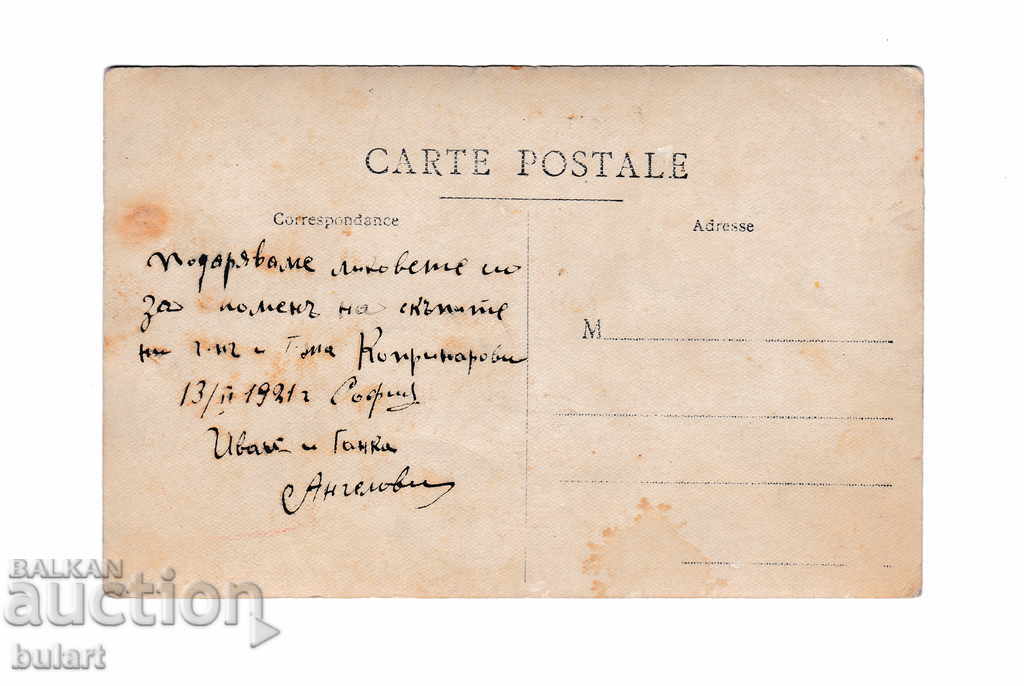 CARTE POSTALE
Correspondance
Adresse
подаряваме ликовете си
за поменъ на скъпите
ни г-нъ и г-жа Копринарови
13/II 1921 г София
Иван и Ганка
Ангелови
M
BALKAN
auction
bulart